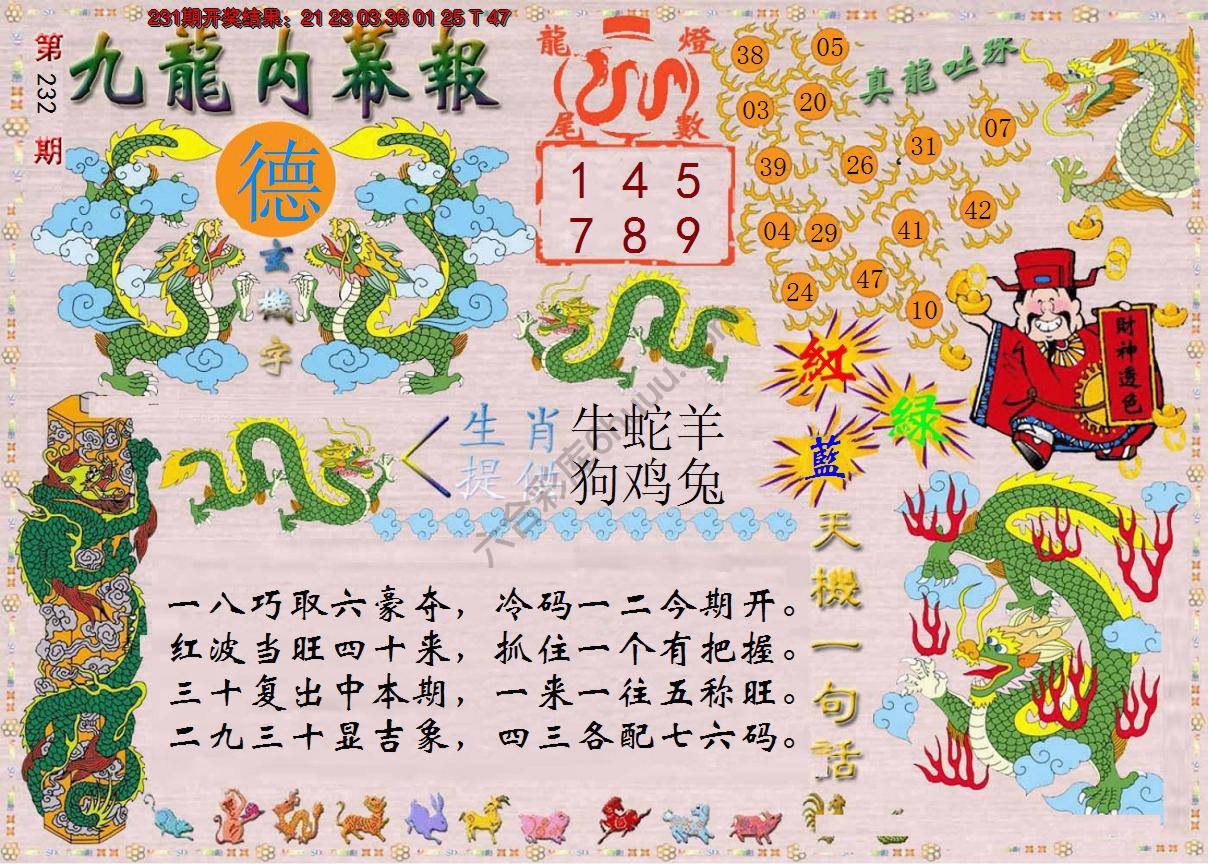 231期开奖结果：21 23 03 36 01 25 T 47
第232期
九龍内幕報
德
玄機字
龍燈
尾數
1 4 5
7 8 9
真龍吐珠
38 05
03 20
39 26 31 07
04 29 41 42
24 47 10
財神透色
紅
綠
藍
生肖 牛蛇羊
提供 狗鸡兔
六合彩库
天機一句話
一八巧取六豪夺，冷码一二今期开。
红波当旺四十来，抓住一个有把握。
三十复出中本期，一来一往五称旺。
二九三十显吉象，四三各配七六码。